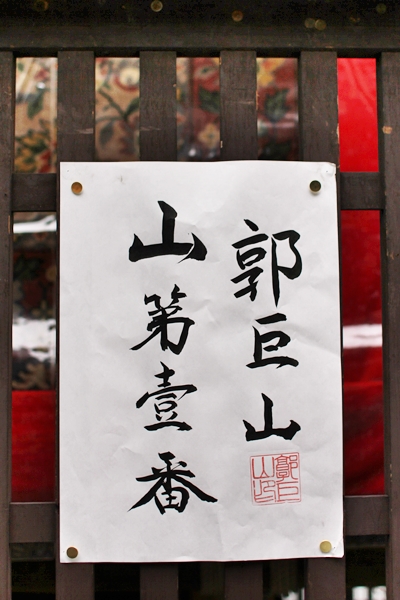 郭巨山
山第壹番
郭巨
山印